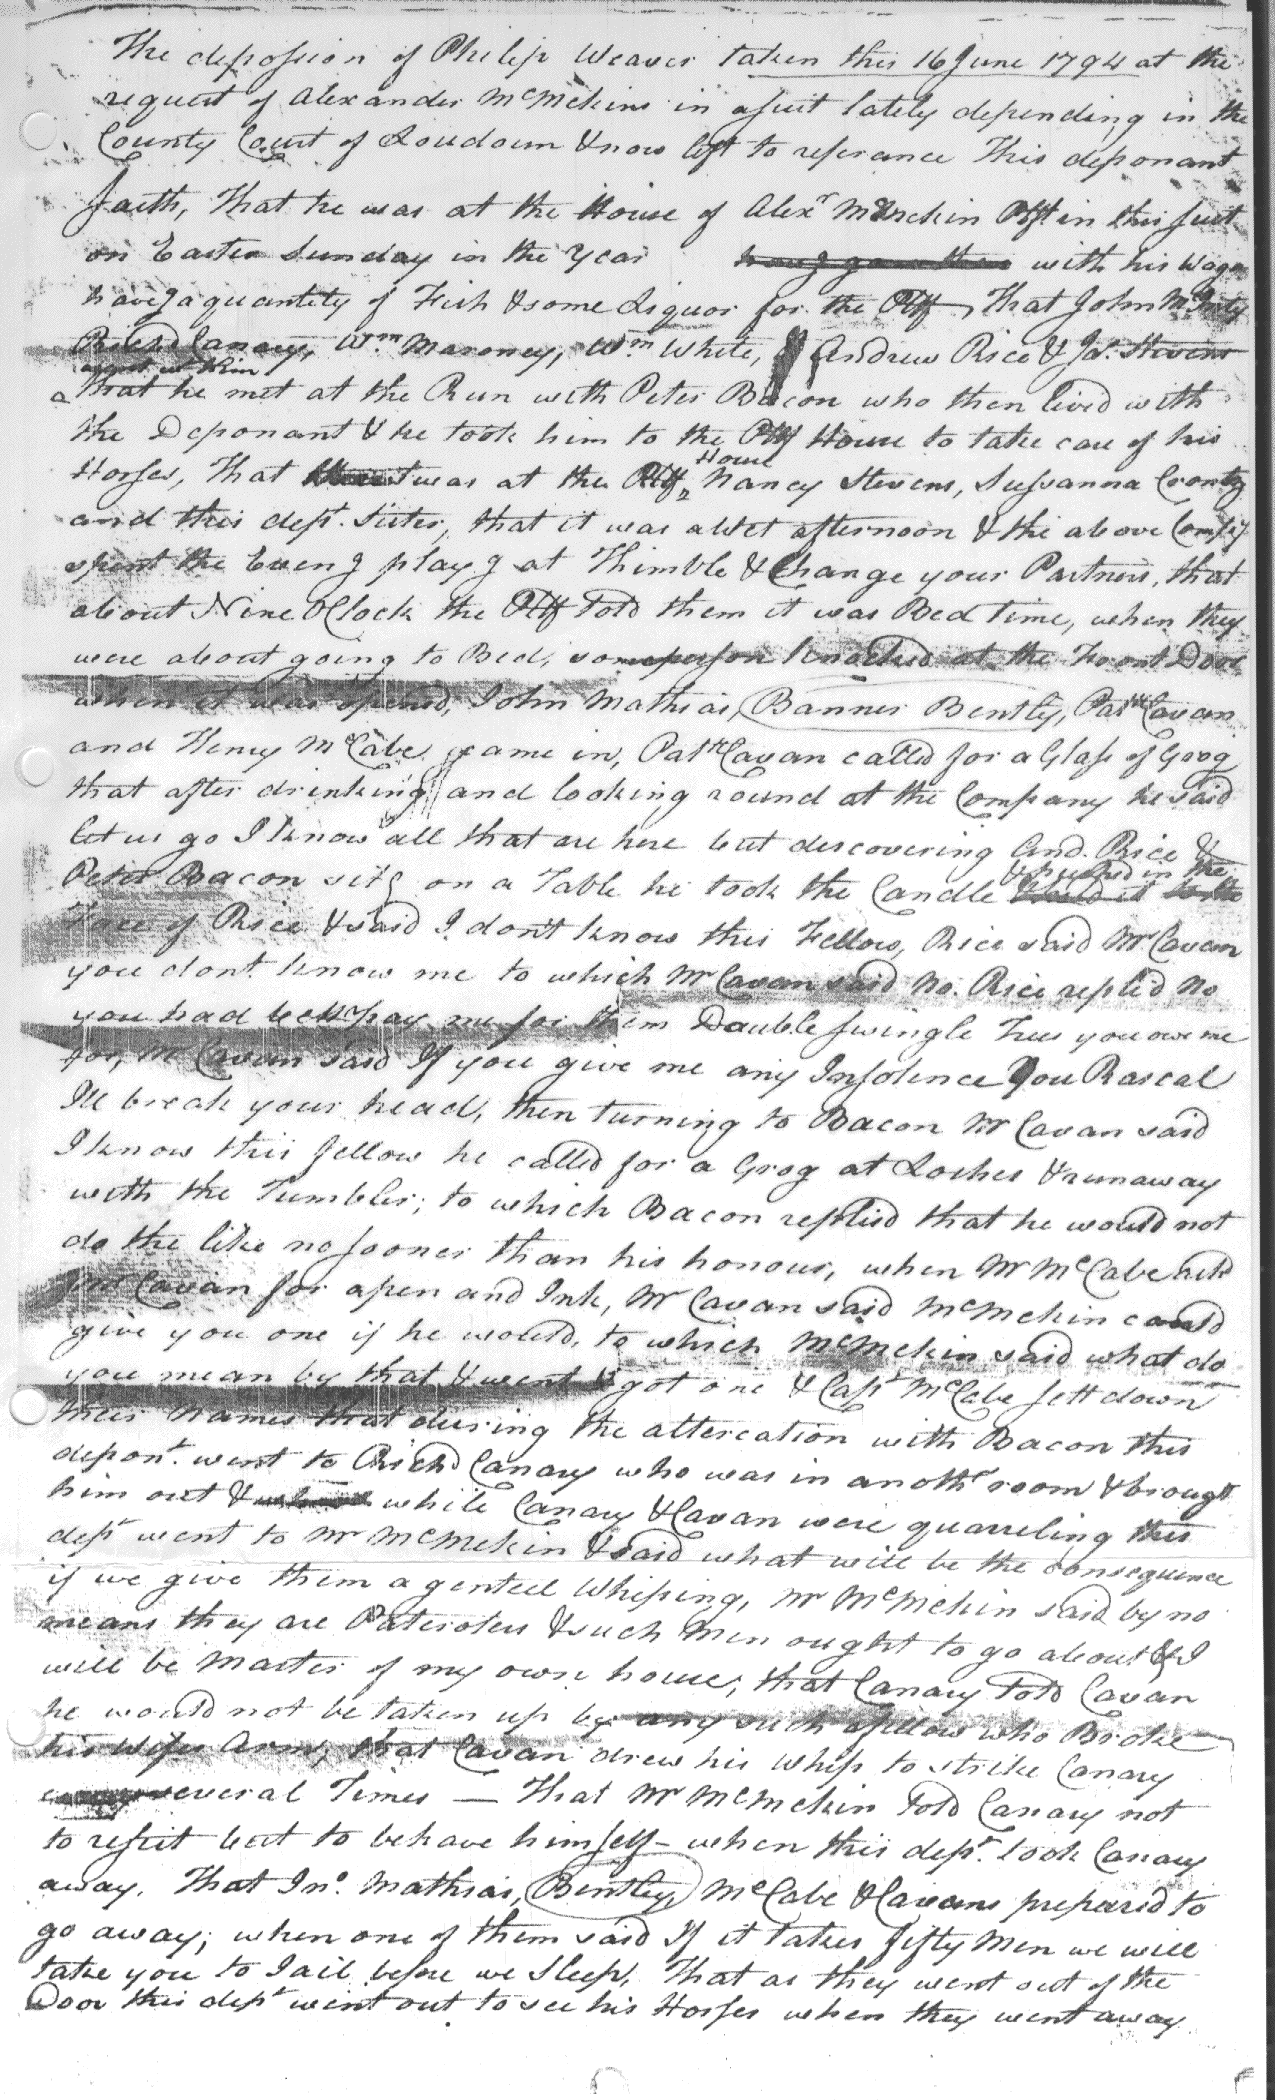 The deposition of Philip Weaver taken this 16 June 1794 at the
request of Alexander McMekins in a suit lately depending in the
County Court of Loudoun & now left to referance This deponant
saith, That he was at the House of Alexr McMekin Plft in this suit
on Easter Sunday in the Year with his Wagn
haveg a quantity of Fish & some Liquor for the Plff, That John
Richd Canary, Wm Maroney, Wm White, & Andrew Rice & Js. Stevens
That he met at the Run with Peter Bacon who then lived with
the Deponant & he took him to the Plff House to take care of his
Horses, That was at the Plffs House Nancy Stevens, Susanna
and this dept. Sister, that it was a Wet afternoon & the above Compy
spent the Eveng playg at Thimble & Change your Partners, that
about Nine OClock the Plff Told them it was Bed Time, when they
were about going to Bed, some person knocked at the Front Door
when it was opened, John Mathias, Banner Bently, Patk Cavan
and Henry McCabe came in, Patk Cavan called for a Glass of Grog
that after drinking and looking round at the Company he said
let us go I know all that are here but descovering And. Rice &
Peter Bacon sitg on a Table he took the Candle & pushed in the
Face of Rice & said I dont know this Fellow, Rice said Mr Cavan
you dont know me to which Mr Cavan said No. Rice replied No
you had pay me for them Double Swingle Trees you owe me
for, Mr Cavan said If you give me any Insolence You Rascal
Ill break your head, then turning to Bacon Mr Cavan said
I know this fellow he called for a Grog at Lockes & runaway
with the Tumbler; to which Bacon replied that he would not
do the like no sooner than his honour, when Mr McCabe askd
Cavan for a pen and Ink, Mr Cavan said McMekin could
give you one if he would, to which McMekin said what do
you mean by that & went & got one & Capt McCabe sett down
their names that during the altercation with Bacon this
depont. went to Richd Canary who was in anothr room & brougt
him out & while Canary & Cavan were quarreling this
dept went to Mr McMekin & said what will be the consequence
if we give them a genteel Whiping, Mr McMekin said by no
means they are Pateroles & such Men ought to go about & I
will be Master of my own house; that Canary Told Cavan
he would not be taken up by any such a fellow who Broke
his Wifes Arm, that Cavan drew his Whip to strike Canary
several Times — That Mr McMekin Told Canary not
to resist but to behave himself – when this dept. took Canary
away. That Jno. Mathias, Bentley, McCabe & Cavans prepared to
go away; when one of them said If it takes fifty Men we will
take you to Jail before we Sleep, That as they went out of the
Door this dept went out to see his Horses when they went away